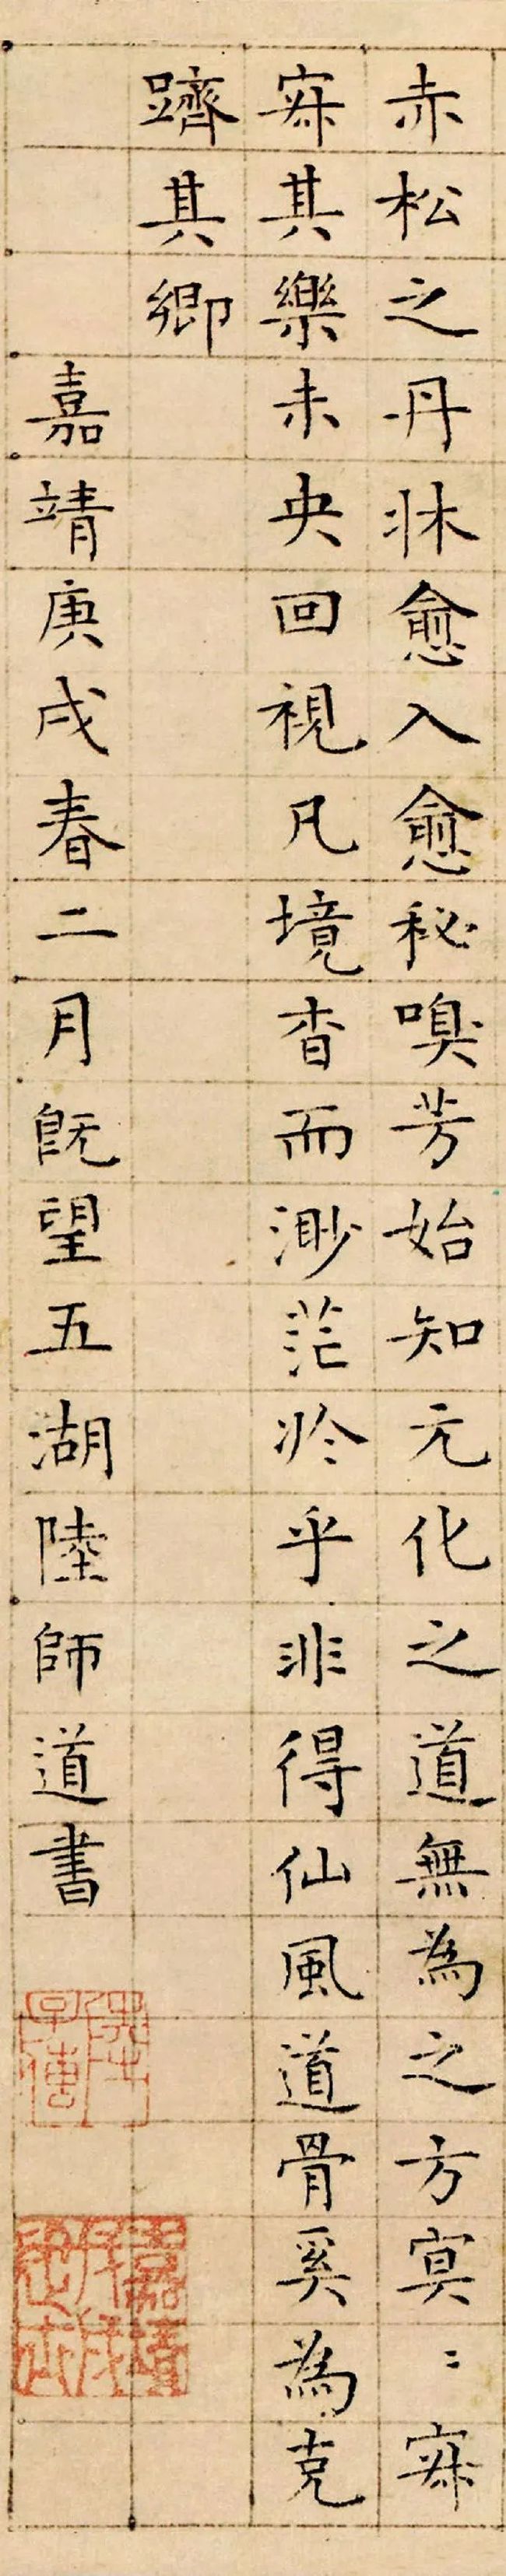 赤松之丹牀愈入愈秘嗅芳始知元化之道無為之方㝠〻寂
寂其樂未央回視凡境杳而渺茫於乎非得仙風道骨奚為克
躋其卿
嘉靖庚戌春二月既望五湖陸師道書
陸氏子傳
嘉靖戊戌進士